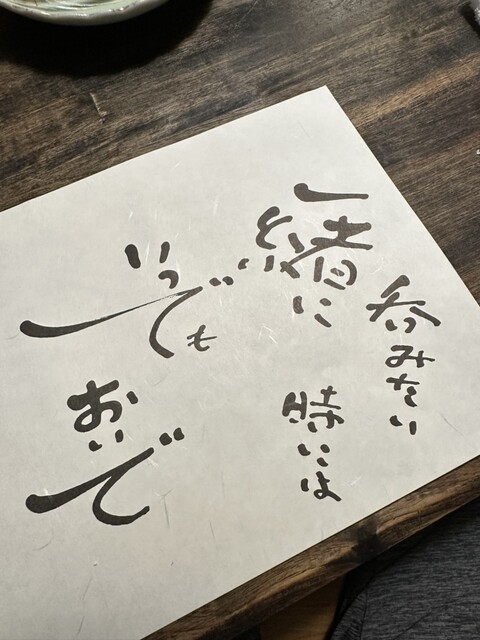 一緒に
呑みたい
時には
いつでも
おいで